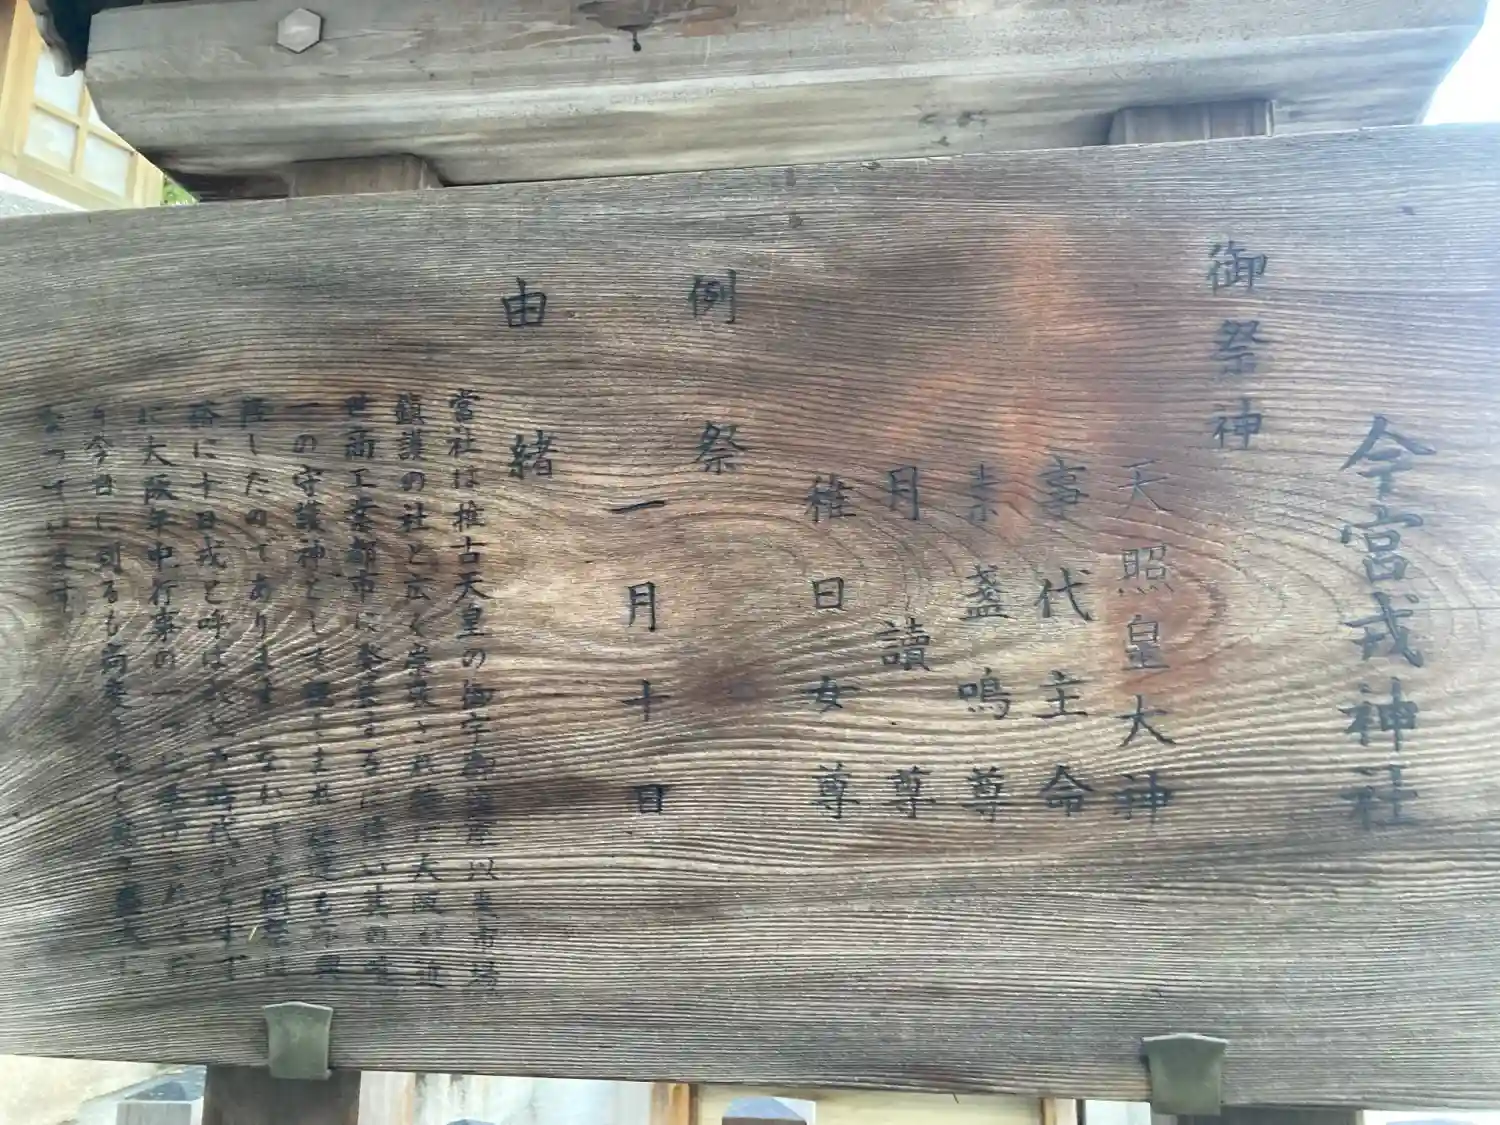 今宮戎神社
御祭神
天照皇大神
事代主命
素盞鳴尊
月讀尊
稚日女尊
例祭
一月十日
由緒
當社は推古天皇の御宇 以来市場
鎮護の社と広く崇 され 大阪が近
世商工業都市に発 するに従い其の唯
一の守護神として
隆したのであります なれ 例祭は
俗に十日戎と呼ばれ 時代からすで
に大阪年中行事の一つ
り今日に到るも尚
なつています